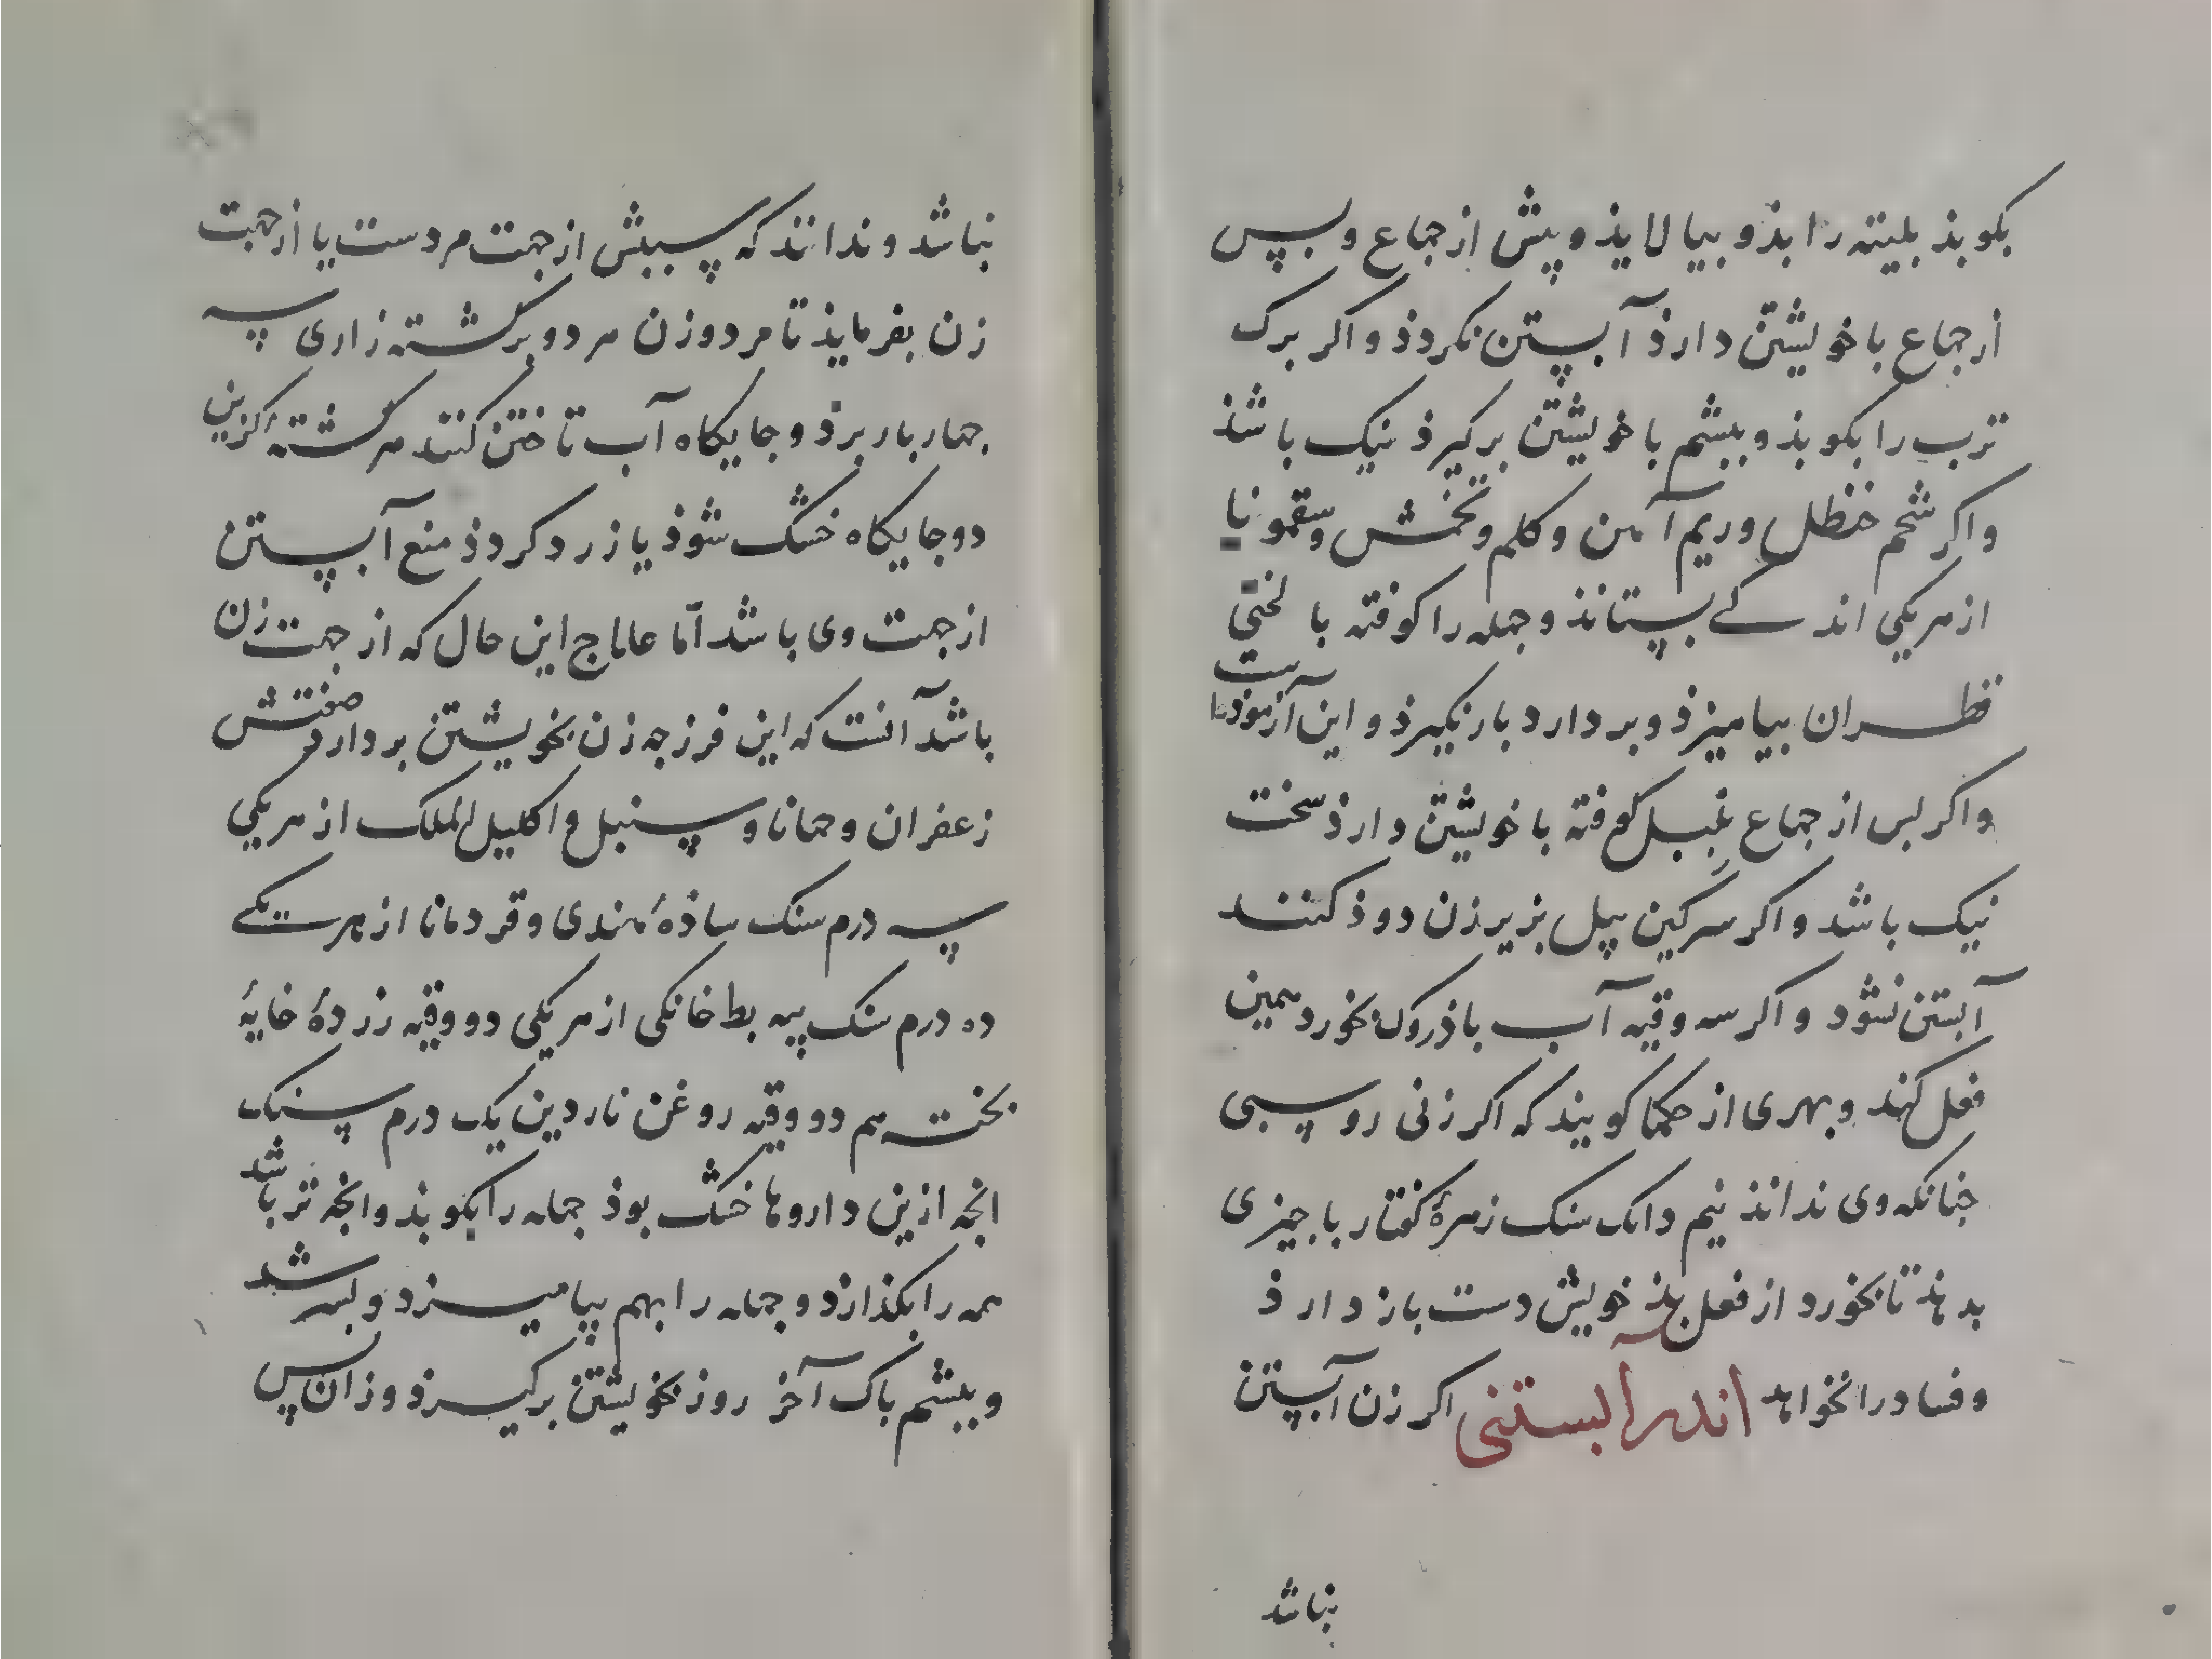 بکوبذ بلیته را بذو بیالایذ و پیش از جماع و بپس
از جماع با خویشتن دارذ آبستن نکردذ و اکر برک
ترب را بکوبذ و ببشم با خویشتن برکیرذ نیک باشذ
و اکر شحم حنظل و ریم آهن و کلم و تخمش و سقمونیا
از هریکی اندکی بستانذ و جمله را کوفته با لختی
قطران بیامیزذ و بردارد بار نکیرذ و این آزموذه است
و اکر بس از جماع کوفته با خویشتن دارذ سخت
نیک باشد و اکر سرکین پیل بزیر زن دوذ کنند
آبستن نشود و اکر سه وقیه آب باذروک بخورد همین
فعل کند و بهری از حکما کویند که اکر زنی روسبی
جنانکه وی نداند نیم دانک سنک زهرهٔ کفتار با جیزی
بدهند تا بخورد از فعل بذ خویش دست باز دارذ
و فساد را نخواهد اندر آبستنی اکر زن آبستن
نباشد
نباشد و ندانند که سببش از جهت مردست یا از جهت
زن بفرمایذ تا مرد و زن هر دو بر کشته زاری سه
جهار بار برذ و جایکاه آب تاختن کنند هر کشته کزین
دو جایکاه خشک شوذ یا زرد کردذ منع آبستن
از جهت وی باشد اما علاج این حال که از جهت زن
باشد آنست که این فرزجه زن بخویشتن بردارد صفتش
زعفران و حماما و سنبل و اکلیل الملک از هریکی
سه درم سنک ساذهٔ هندی و قردمانا از هر یکی
ده درم سنک پیه بط خانکی از هریکی دو وقیه زردهٔ خایهٔ
بخته هم دو وقیه روغن ناردین یک درم سنک
انجه ازین داروها خشک بوذ جمله را بکوبذ و انجه تر باشد
همه را بکذازد و جمله را بهم بیامیزد و
و ببشم باک آخر روز بخویشتن برکیرذ و زان پس